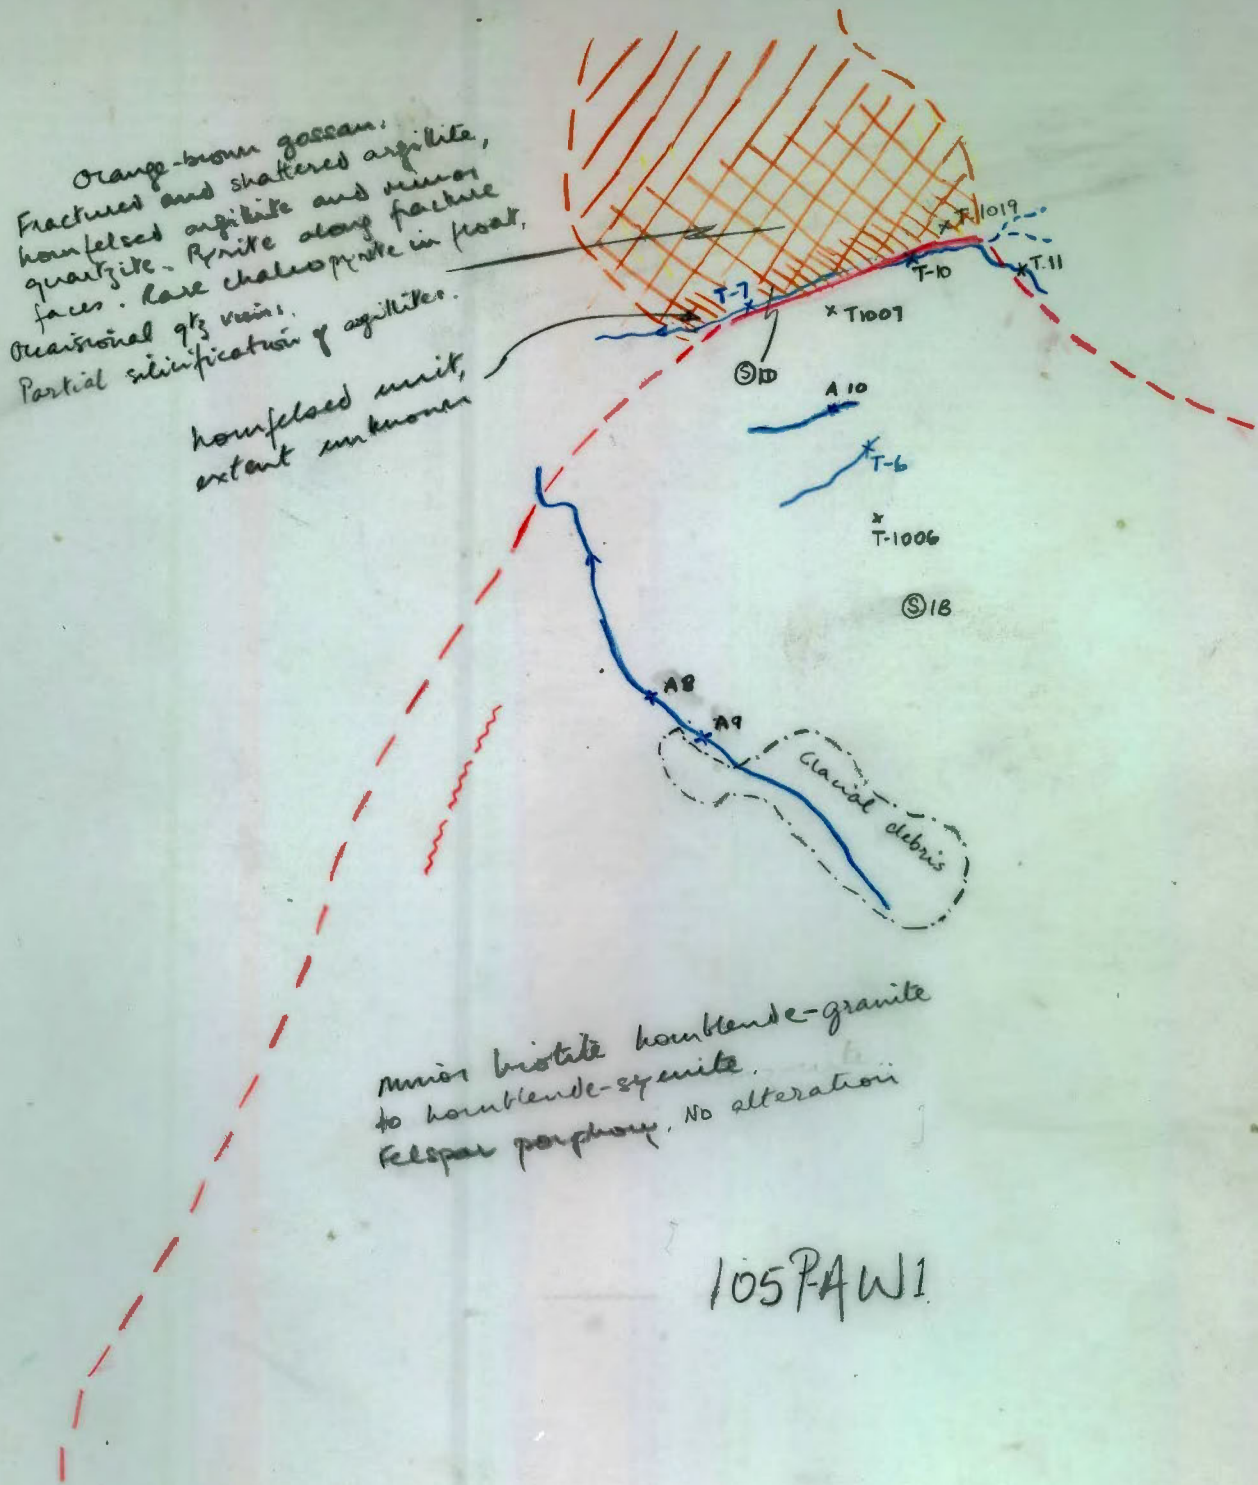 Orange-brown gossan.
Fractured and shattered argillite,
hornfelsed argillite and minor
quartzite. Pyrite along fracture
faces. Rare chalcopyrite in float.
Occaisional qtz veins.
Partial silicification of agillites.
hornfelsed unit,
extent unknown
T-1019
T-10
T-11
T-7
T1007
Ⓢ1D
A 10
T-6
T-1006
Ⓢ1B
A8
A9
Glacial debris
Minor biotite hornblende-granite
to hornblende-syenite.
Felspar porphory. No alteration
105PAW1